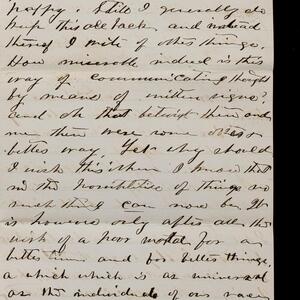 happy. Still I generally do
keep this all back and instead
thereof I write of other things.
How miserable indeed is this
way of communicating thought
by means of written signs?
and oh that betwixt thee and
me there were some other &
better way. Yet why should
I wish this when I know that
in the of things no
such thing I can now be. It
is however only after all the
wish of a poor mortal for a
better time and for better things,
a wish which is as universal
as the individuals of our race